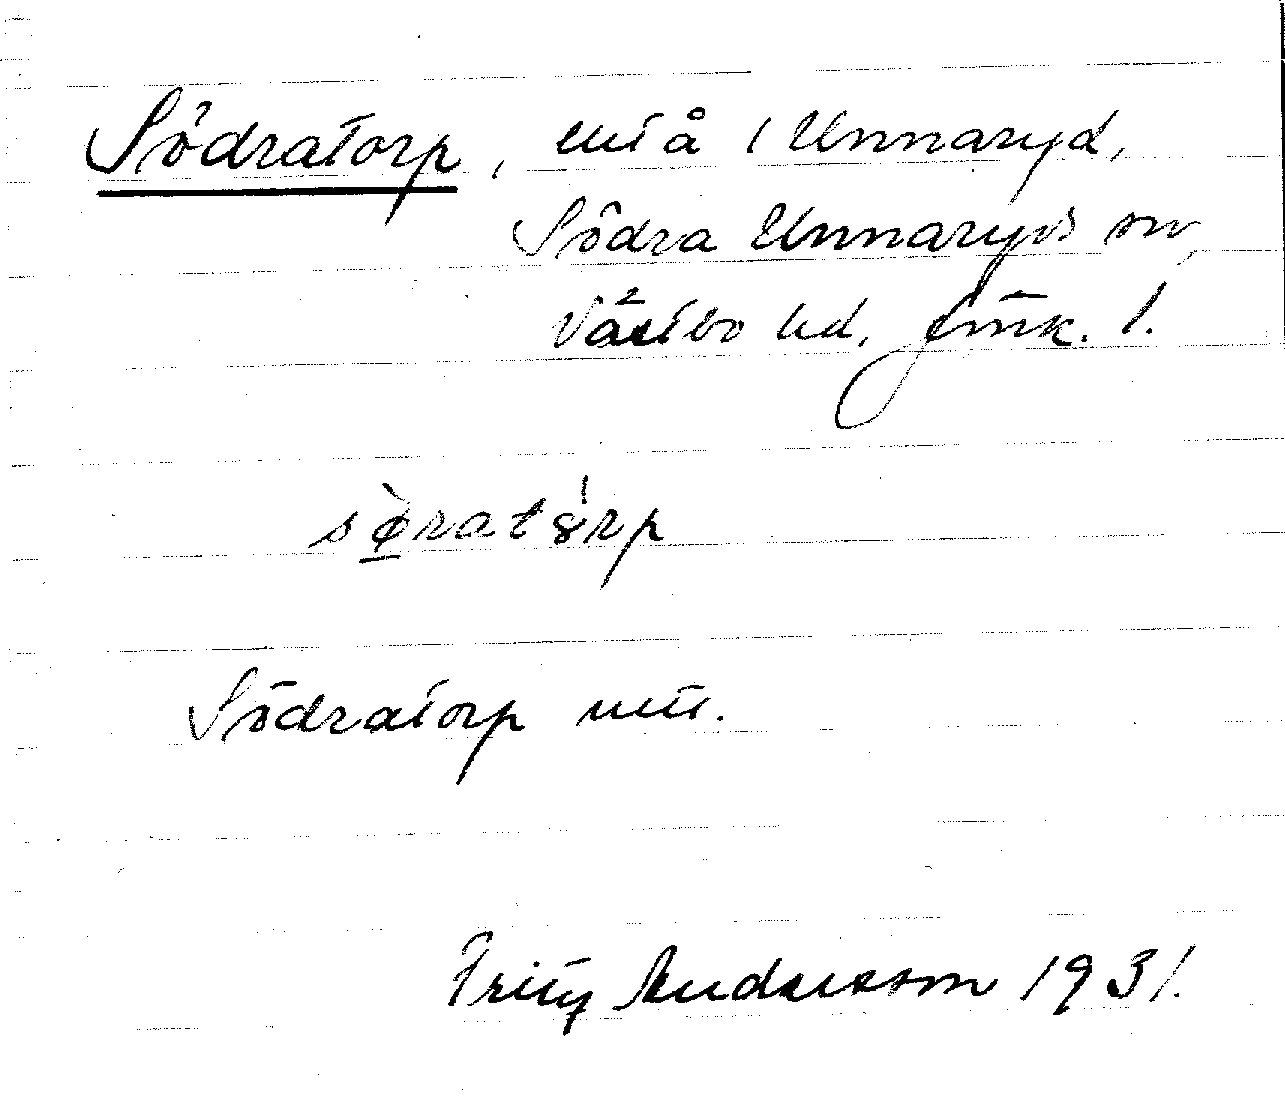 Södratorp, uti å 1 Unnaryd,
Södra Unnaryds sn,
Västbo hd, Jönk. l.
sø̀ratórp
Södratorp
Fritz Andersson 1931.